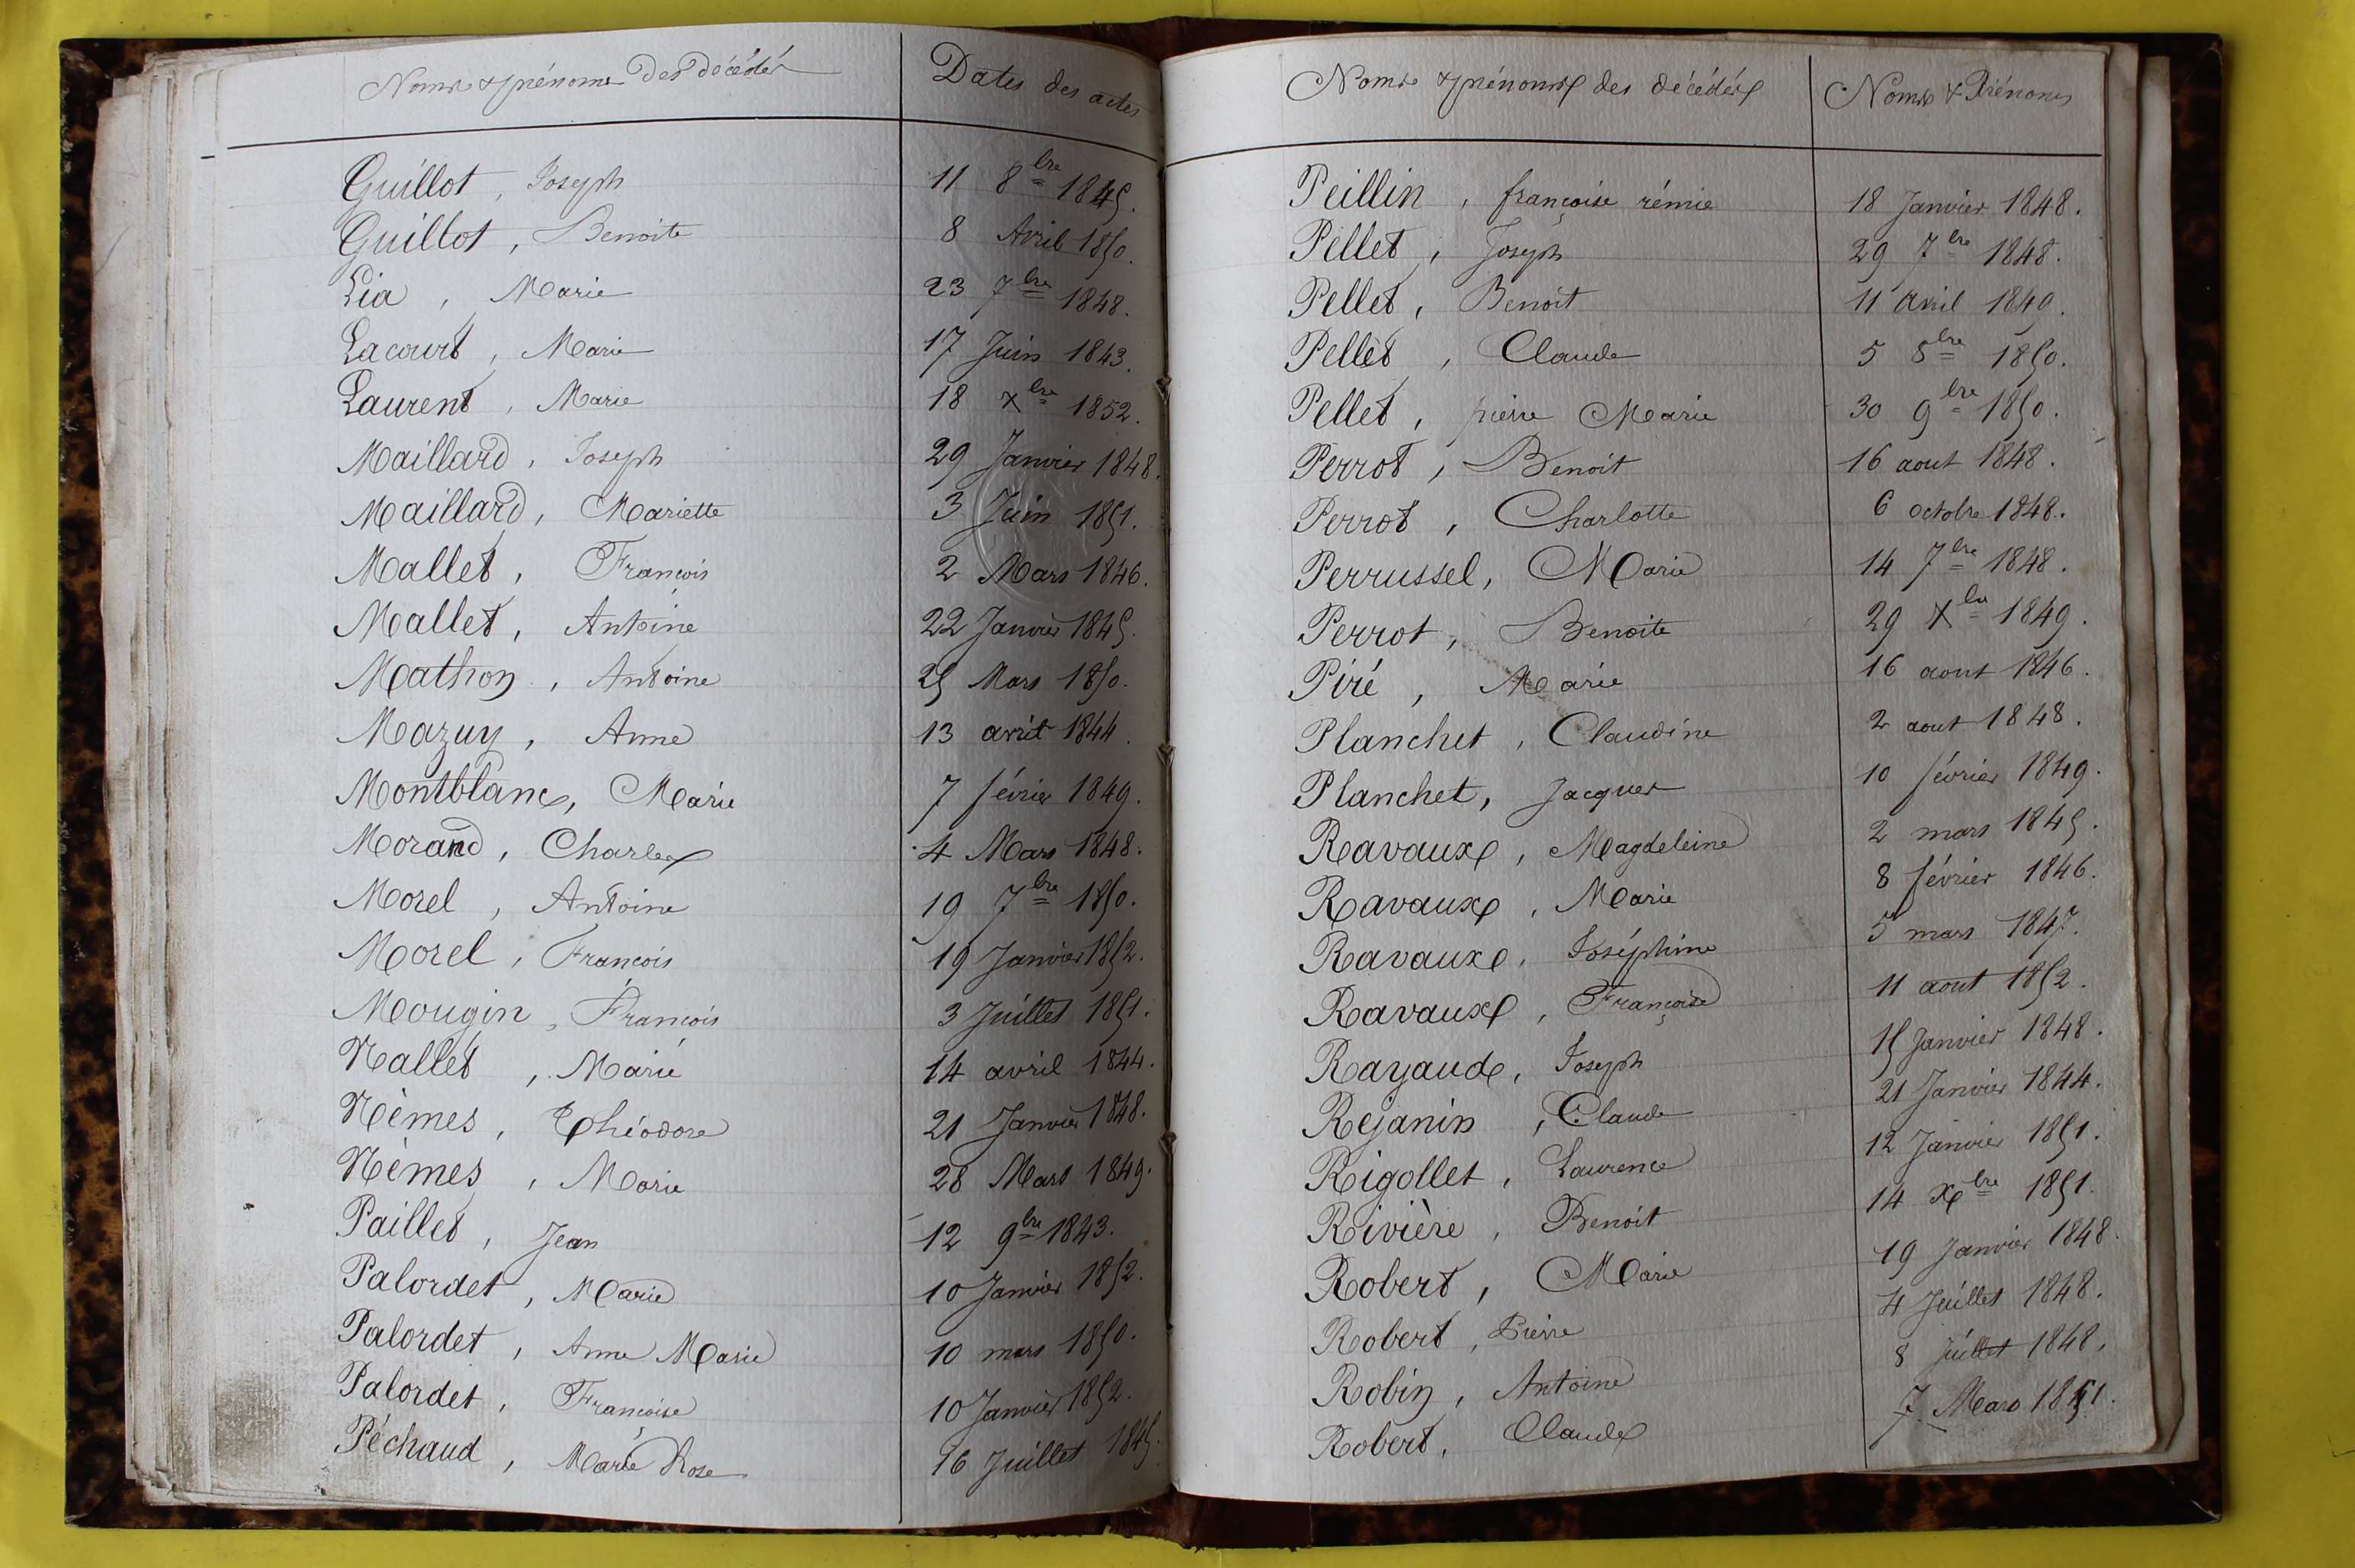 Noms & prénoms des décédés Dates des actes
Guillot, Joseph 11 8bre 1845.
Guillot, Benoite 8 Avril 1850.
Lia, Marie 23 7bre 1848.
Lacourt, Marie 17 Juin 1843.
Laurent, Marie 18 Xbre 1852.
Maillard, Joseph 29 Janvier 1848.
Maillard, Mariette 3 Juin 1851.
Mallet, François 2 Mars 1846.
Mallet, Antoine 22 Janvier 1845.
Mathon, Antoine 25 Mars 1850.
Mazuy, Anne 13 avril 1844.
Montblanc, Marie 7 février 1849.
Morand, Charles 4 Mars 1848.
Morel, Antoine 19 7bre 1850.
Morel, François 19 Janvier 1852.
Mougin, François 3 Juillet 1851.
Nallet, Marie 14 avril 1844.
Nèmes, Théodore 21 Janvier 1848.
Nèmes, Marie 28 Mars 1849.
Paillet, Jean 12 9bre 1843.
Palordet, Marie 10 Janvier 1852.
Palordet, Anne Marie 10 mars 1850.
Palordet, Françoise 10 Janvier 1852.
Péchaud, Marie Rose 16 Juillet 1845.
Noms & prénoms des décédés Noms & Prénoms
Peillin, françoise rémie 18 Janvier 1848.
Pellet, Joseph 29 7bre 1848.
Pellet, Benoit 11 avril 1849.
Pellet, Claude 5 8bre 1850.
Pellet, pierre Marie 30 9bre 1850.
Perrot, Benoit 16 aout 1848.
Perrot, Charlotte 6 octobre 1848.
Perrussel, Marie 14 7bre 1848.
Perrot, Benoite 29 Xbre 1849.
Piré, Marie 16 aout 1846.
Planchet, Claudine 2 aout 1848.
Planchet, Jacques 10 février 1849.
Ravaux, Magdeleine 2 mars 1845.
Ravaux, Marie 8 février 1846.
Ravaux, Joséphine 5 mars 1847.
Ravaux, Françoise 11 aout 1852.
Rayaud, Joseph 15 Janvier 1848.
Rejanin, Claude 21 Janvier 1844.
Rigollet, Laurence 12 Janvier 1851.
Rivière, Benoit 14 Xbre 1851.
Robert, Marie 19 Janvier 1848.
Robert, Pierre 4 Juillet 1848.
Robin, Antoine 8 Juillet 1848.
Robert, Claude 7 Mars 1851.